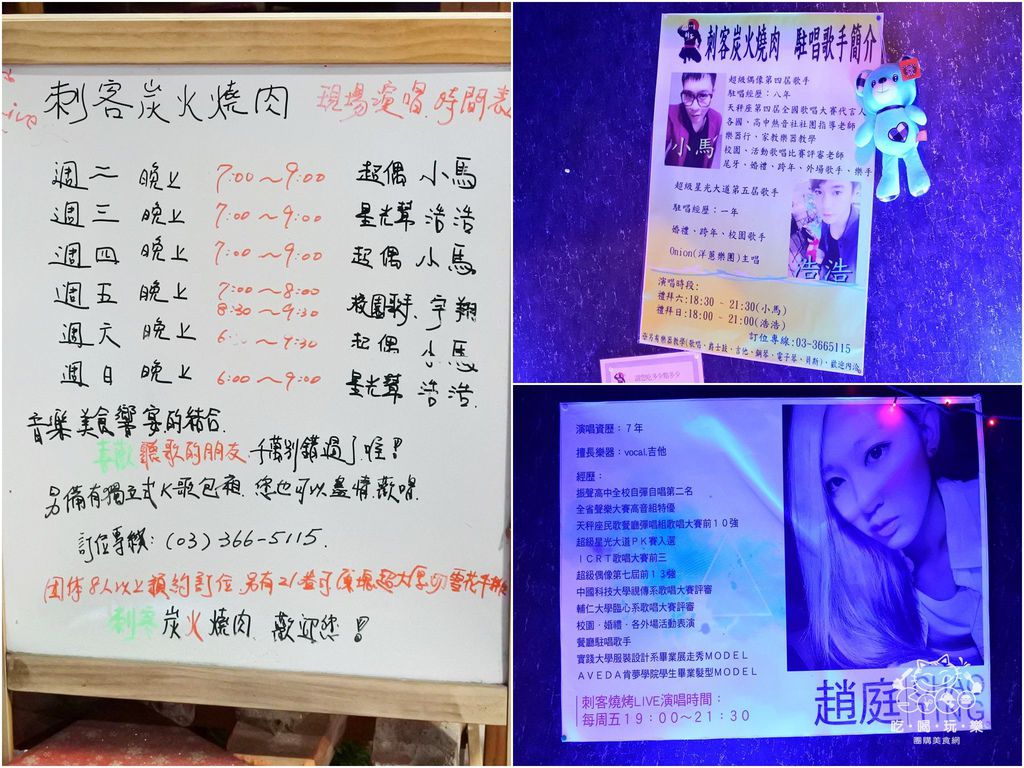 Live
刺客炭火燒肉 現場演唱.時間表
週二 晚上 7:00～9:00 超偶 小馬
週三 晚上 7:00～9:00 星光幫 浩浩
週四 晚上 7:00～9:00 超偶 小馬
週五 晚上 7:00～8:00
8:30～9:30 校園歌手 宇翔
週六 晚上 6: ～9:30 超偶 小馬
週日 晚上 6:00～9:00 星光幫 浩浩
音樂美食響宴的結合.
喜歡聽歌的朋友千萬別錯過了喔!
另備有獨立式K歌包箱.您也可以盡情歡唱.
訂位專線:(03)366-5115.
团体8人以上預約訂位.另有
刺客炭火燒肉.歡迎您!
刺客炭火燒肉 駐唱歌手簡介
超級偶像第四屆歌手
駐唱經歷：八年
天秤座第四屆全國歌唱大賽代言人
各國、高中熱音社社團指導老師
樂器行、家教樂器教學
校園、活動歌唱比賽評審老師
尾牙、婚禮、跨年、外場歌手、樂手
小馬
超級星光大道第五屆歌手
駐唱經歷：一年
婚禮、跨年、校園歌手
Onion(洋蔥樂團)主唱
浩浩
演唱時段:
禮拜六:18:30 ~ 21:30(小馬)
禮拜日:18:00 ~ 21:00(浩浩)
訂位專線:03-3665115
另有樂器教學(歌唱、爵士鼓、吉他、鋼琴、電子琴、貝斯)，歡迎內洽
演唱資歷：7年
擅長樂器：vocal.吉他
經歷：
振聲高中全校自彈自唱第二名
全省聲樂大賽高音組特優
天秤座民歌餐廳彈唱組歌唱大賽前10強
超級星光大道PK賽入選
ICRT歌唱大賽前三
超級偶像第七屆前13強
中國科技大學視傳系歌唱大賽評審
輔仁大學臨心系歌唱大賽評審
校園．婚禮．各外場活動表演
餐廳駐唱歌手
實踐大學服裝設計系畢業展走秀MODEL
AVEDA肯夢學院學生畢業髮型MODEL
刺客燒烤LIVE演唱時間：
每周五19：00～21：30
趙庭
吃·喝·玩·樂
團購美食網